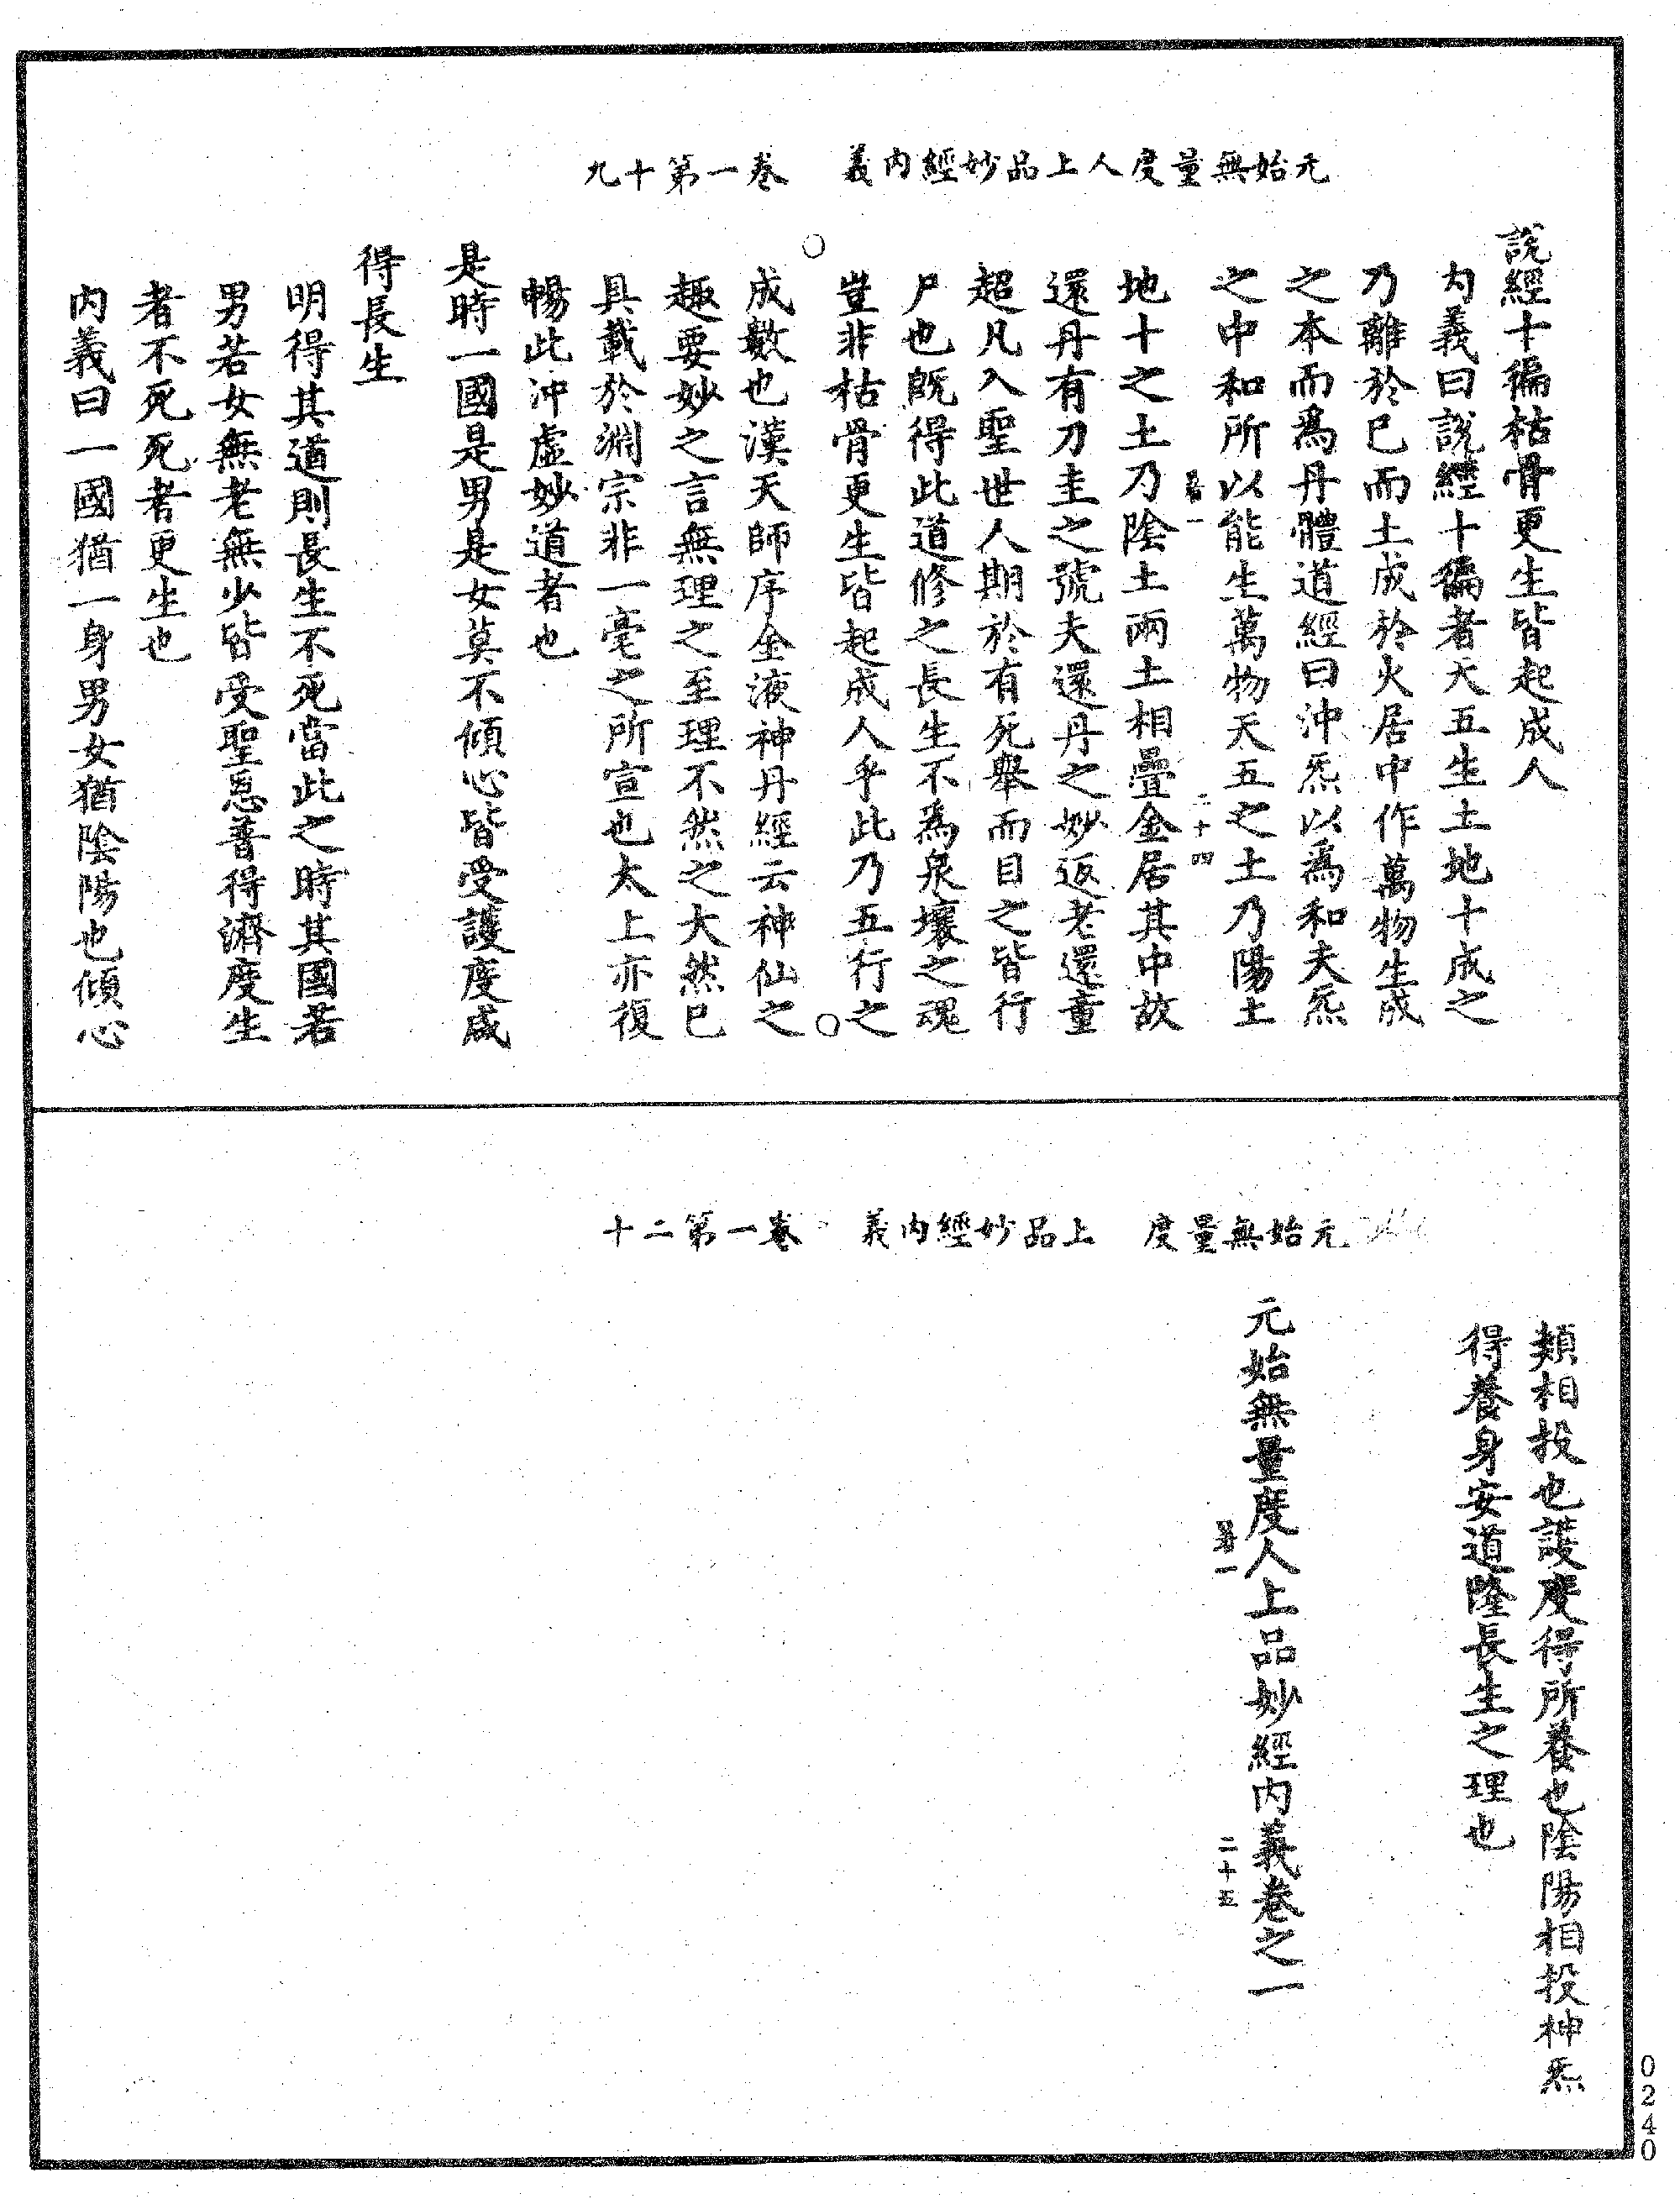 元始無量度人上品妙經內義　卷一第十九
說經十徧枯骨更生皆起成人
內義曰說經十徧者天五生土地十成之
乃離於已而土成於火居中作萬物生成
之本而爲丹體道經曰沖炁以爲和夫炁
之中和所以能生萬物天五之土乃陽土
二十四
地十之土乃陰土兩土相疊金居其中故
還丹有刀圭之號夫還丹之妙返老還童
超凡入聖世人期於有死舉而目之皆行
尸也旣得此道修之長生不爲泉壤之魂
豈非枯骨更生皆起成人乎此乃五行之
成數也漢天師序金液神丹經云神仙之
趣要妙之言無理之至理不然之大然已
具載於淵宗非一毫之所宣也太上亦復
暢此沖虛妙道者也
是時一國是男是女莫不傾心皆受護度咸
得長生
明得其道則長生不死當此之時其國若
男若女無老無少皆受聖恩普得濟度生
者不死死者更生也
內義曰一國猶一身男女猶陰陽也傾心
元始無量度　上品妙經內義　卷一第二十
類相投也護度得所養也陰陽相投神炁
得養身安道隆長生之理也
元始無量度人上品妙經內義卷之一
二十五
0240